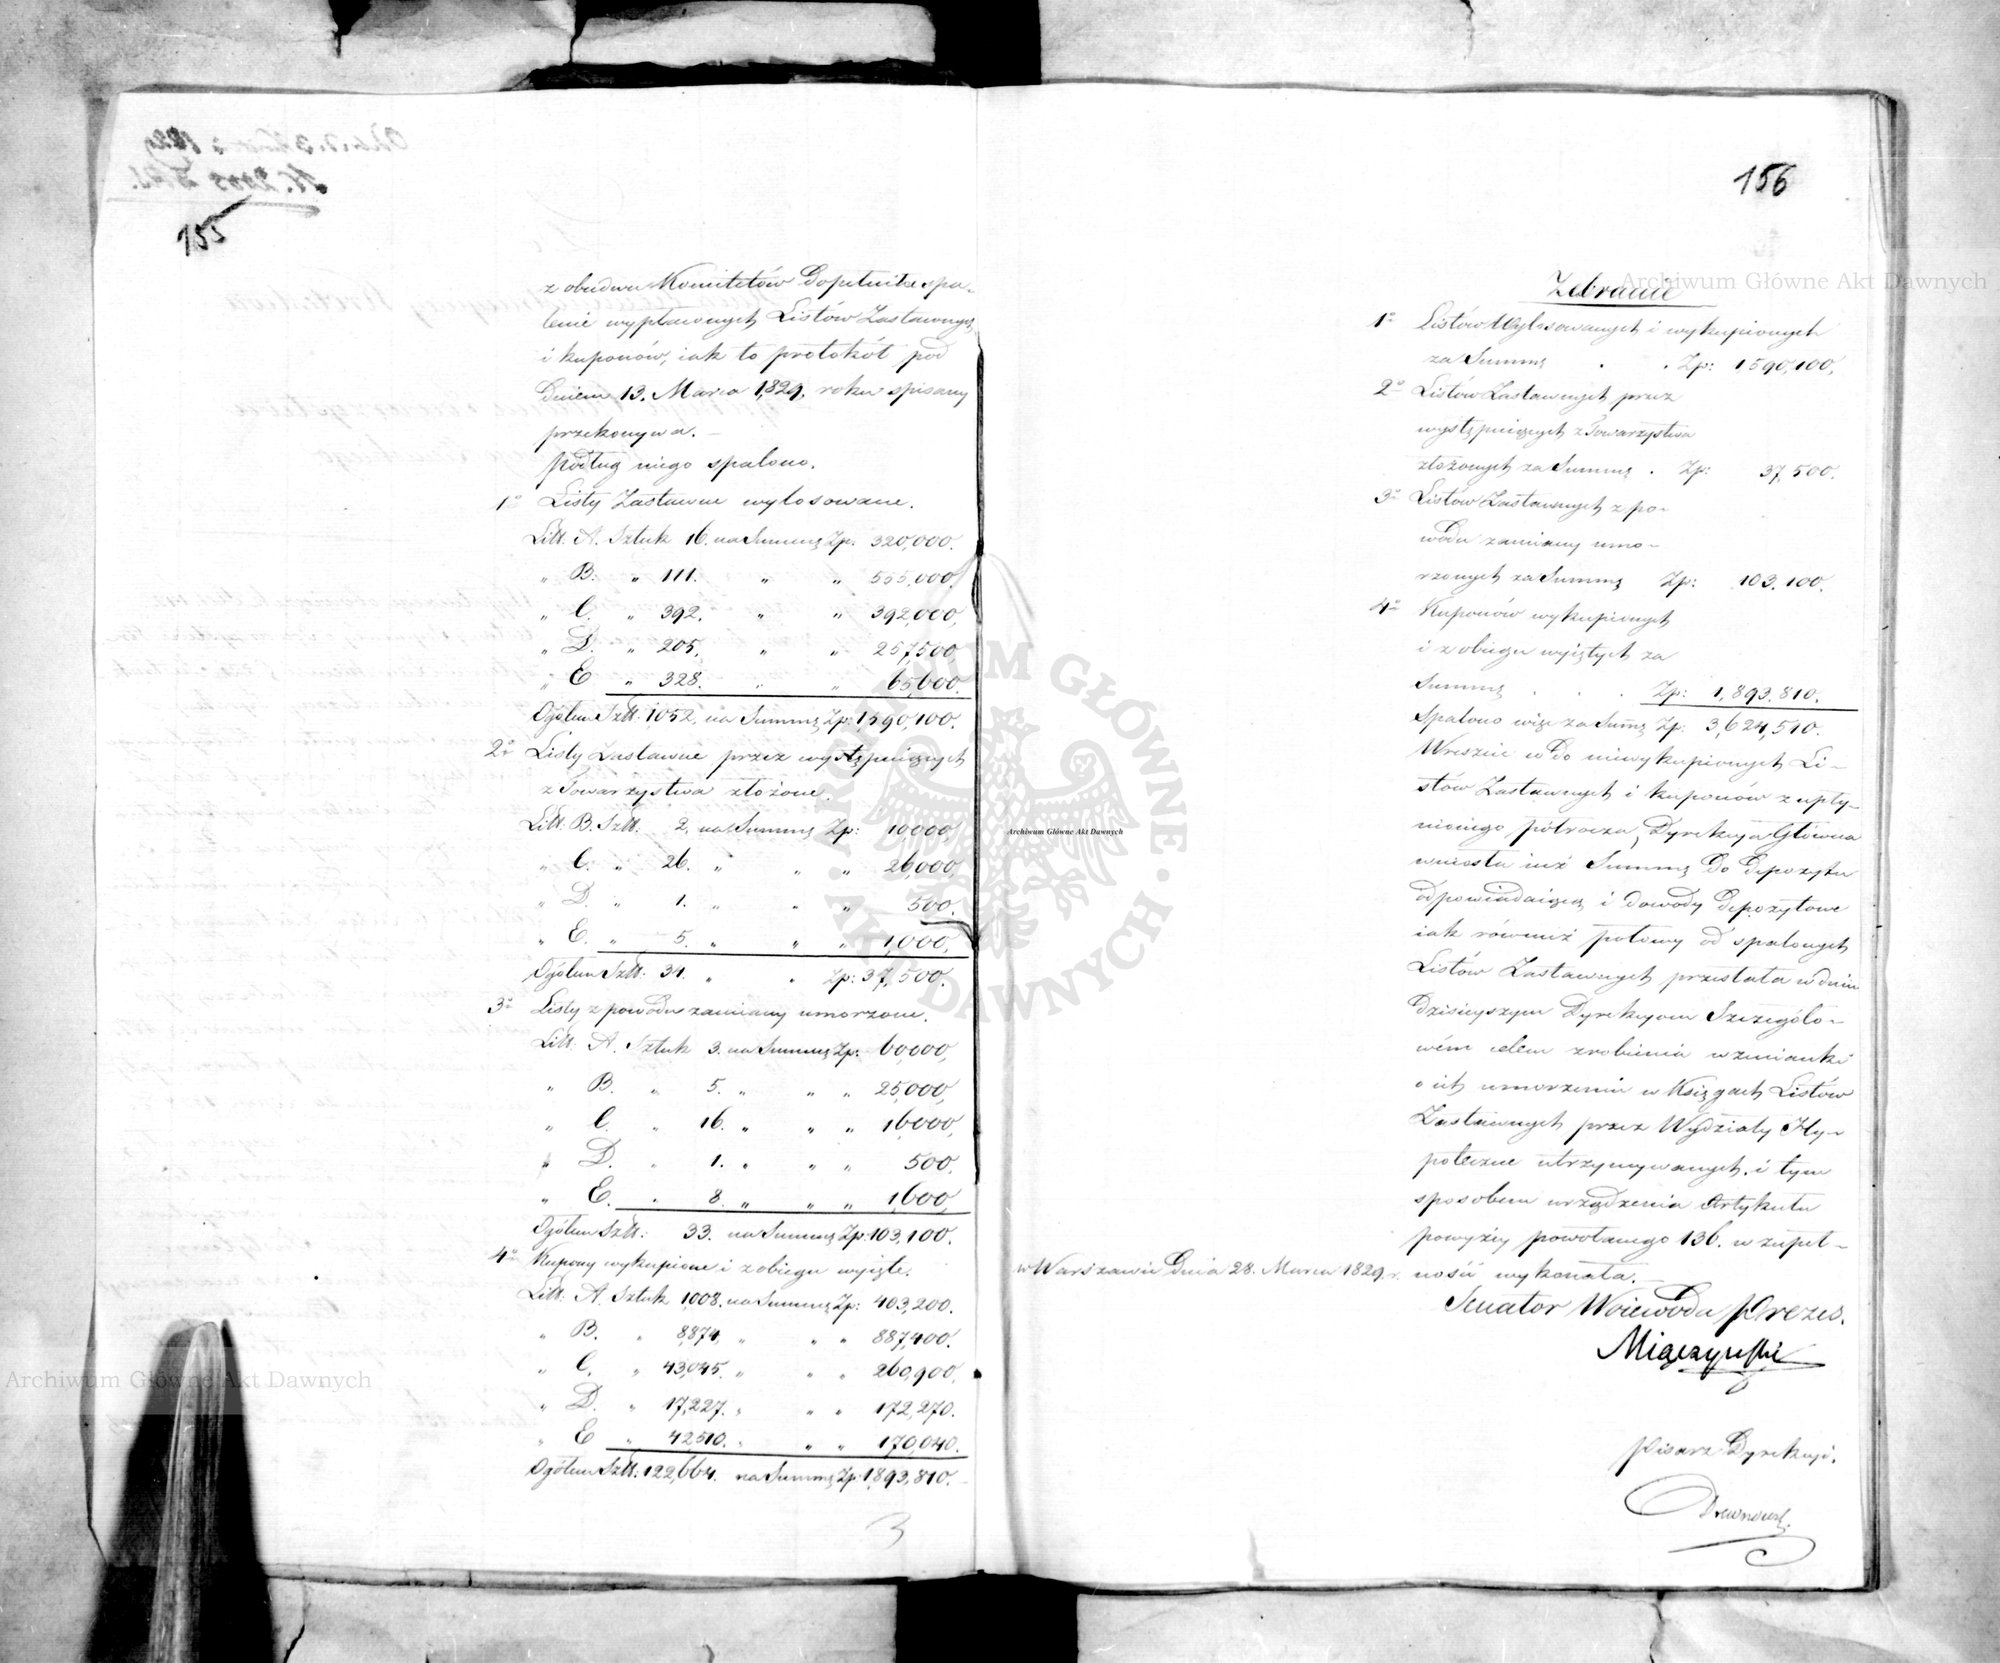 155
z obudwu Komitetów dopełniłże spa-
lenie wypłaconych Listów Zastawnych
i kuponów, iak to protokół pod
dniem 13. Marca 1,829, roku spisany
przekonywa. —
Podług niego spalono.
1o Listy Zastawne wylosowane.
Litt. A. Sztuk 16. na Summę Zp: 320,000.
" B. " 111. " " 555,000,
" C. " 392. " " 392,000,
" D. " 205, " " 257,500
" E " 328. " " 65,600.
Ogółem Sztt: 1052, na Summę Zp: 1,590,100.
2o Listy Zastawne przez występuiących
z Towarzystwa złożone.
Litt: B. Sztt: 2, na Summę Zp: 10000,
" C. " 26. " " " 26,000,
" D. " 1. " " " 500.
" E. " 5. " " " 1,000,
Ogółem Sztt: 34. " " Zp: 37,500.
3o Listy z powodu zamiany umorzone.
Litt: A. Sztuk 3. na Summę Zp: 60,000,
" B. " 5. " " " 25,000,
" C. " 16. " " " 16,000,
" D. " 1. " " " 500,
" E. " 8. " " " 1,600,
Ogółem Sztt: 33. na Summę Zp: 103,100.
4o Kupony wykupione i z obiegu wyięte.
Litt: A. Sztuk 1,008. na Summę Zp: 403,200.
" B. " 8,874, " " " 887,400.
" C. " 43,045. " " " 260,900,
" D. " 17,227. " " " 172,270.
" E " 42510. " " " 170,040.
Ogółem Sztt: 122,664. na Summę Zp: 1,893,810. —
3
156
Zebranie
1o Listów Wylosowanych i wykupionych
za Summę . . Zp: 1,590,100,
2o Listów Zastawnych przez
występuiących z Towarzystwa
złożonych za Summę . Zp: 37,500.
3o Listów Zastawnych z po-
wodu zamiany umo-
rzonych za Summę Zp: 103,100.
4o Kuponów wykupionych
i z obiegu wyiętych za
Summę . . . Zp: 1,893,810.
Spalono więc za Summę Zp: 3,624,510.
Wreszcie w do niewykupionych Li-
stów Zastawnych i kuponów z upły-
nionego półrocza, Dyrekcya Główna
wniosła iuż Summę do depozytu
odpowiadaiącą i dowody depozytowe
iak również połowy od spalonych
Listów Zastawnych przesłała w dniu
dzisieyszym Dyrekcyom Szczegóło-
wém celem zrobienia wzmianki
o ich umorzeniu w Księgach Listów
Zastawnych przez Wydziały Hy-
poteczne utrzymywanych, i tym
sposobem urządzenia Artykułu
powyżey powołanego 136. w zupeł-
ności wykonała. —
w Warszawie dnia 28. Marca 1829 r.
Senator Woiewoda Prezes.
Miączyński
Pisarz Dyrekcyi.
Drewnowski
Archiwum Główne Akt Dawnych
Archiwum Główne Akt Dawnych
Archiwum Główne Akt Dawnych
ARCHIWUM GŁÓWNE AKT DAWNYCH